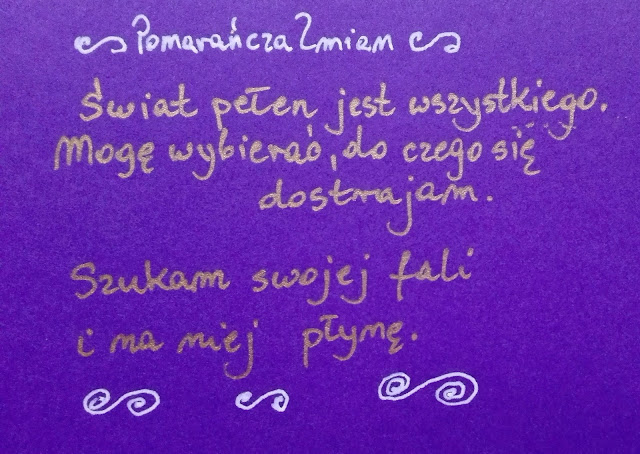 Pomarańcza Zmian
Świat pełen jest wszystkiego.
Mogę wybierać, do czego się
dostrajam.
Szukam swojej fali
i na niej płynę.